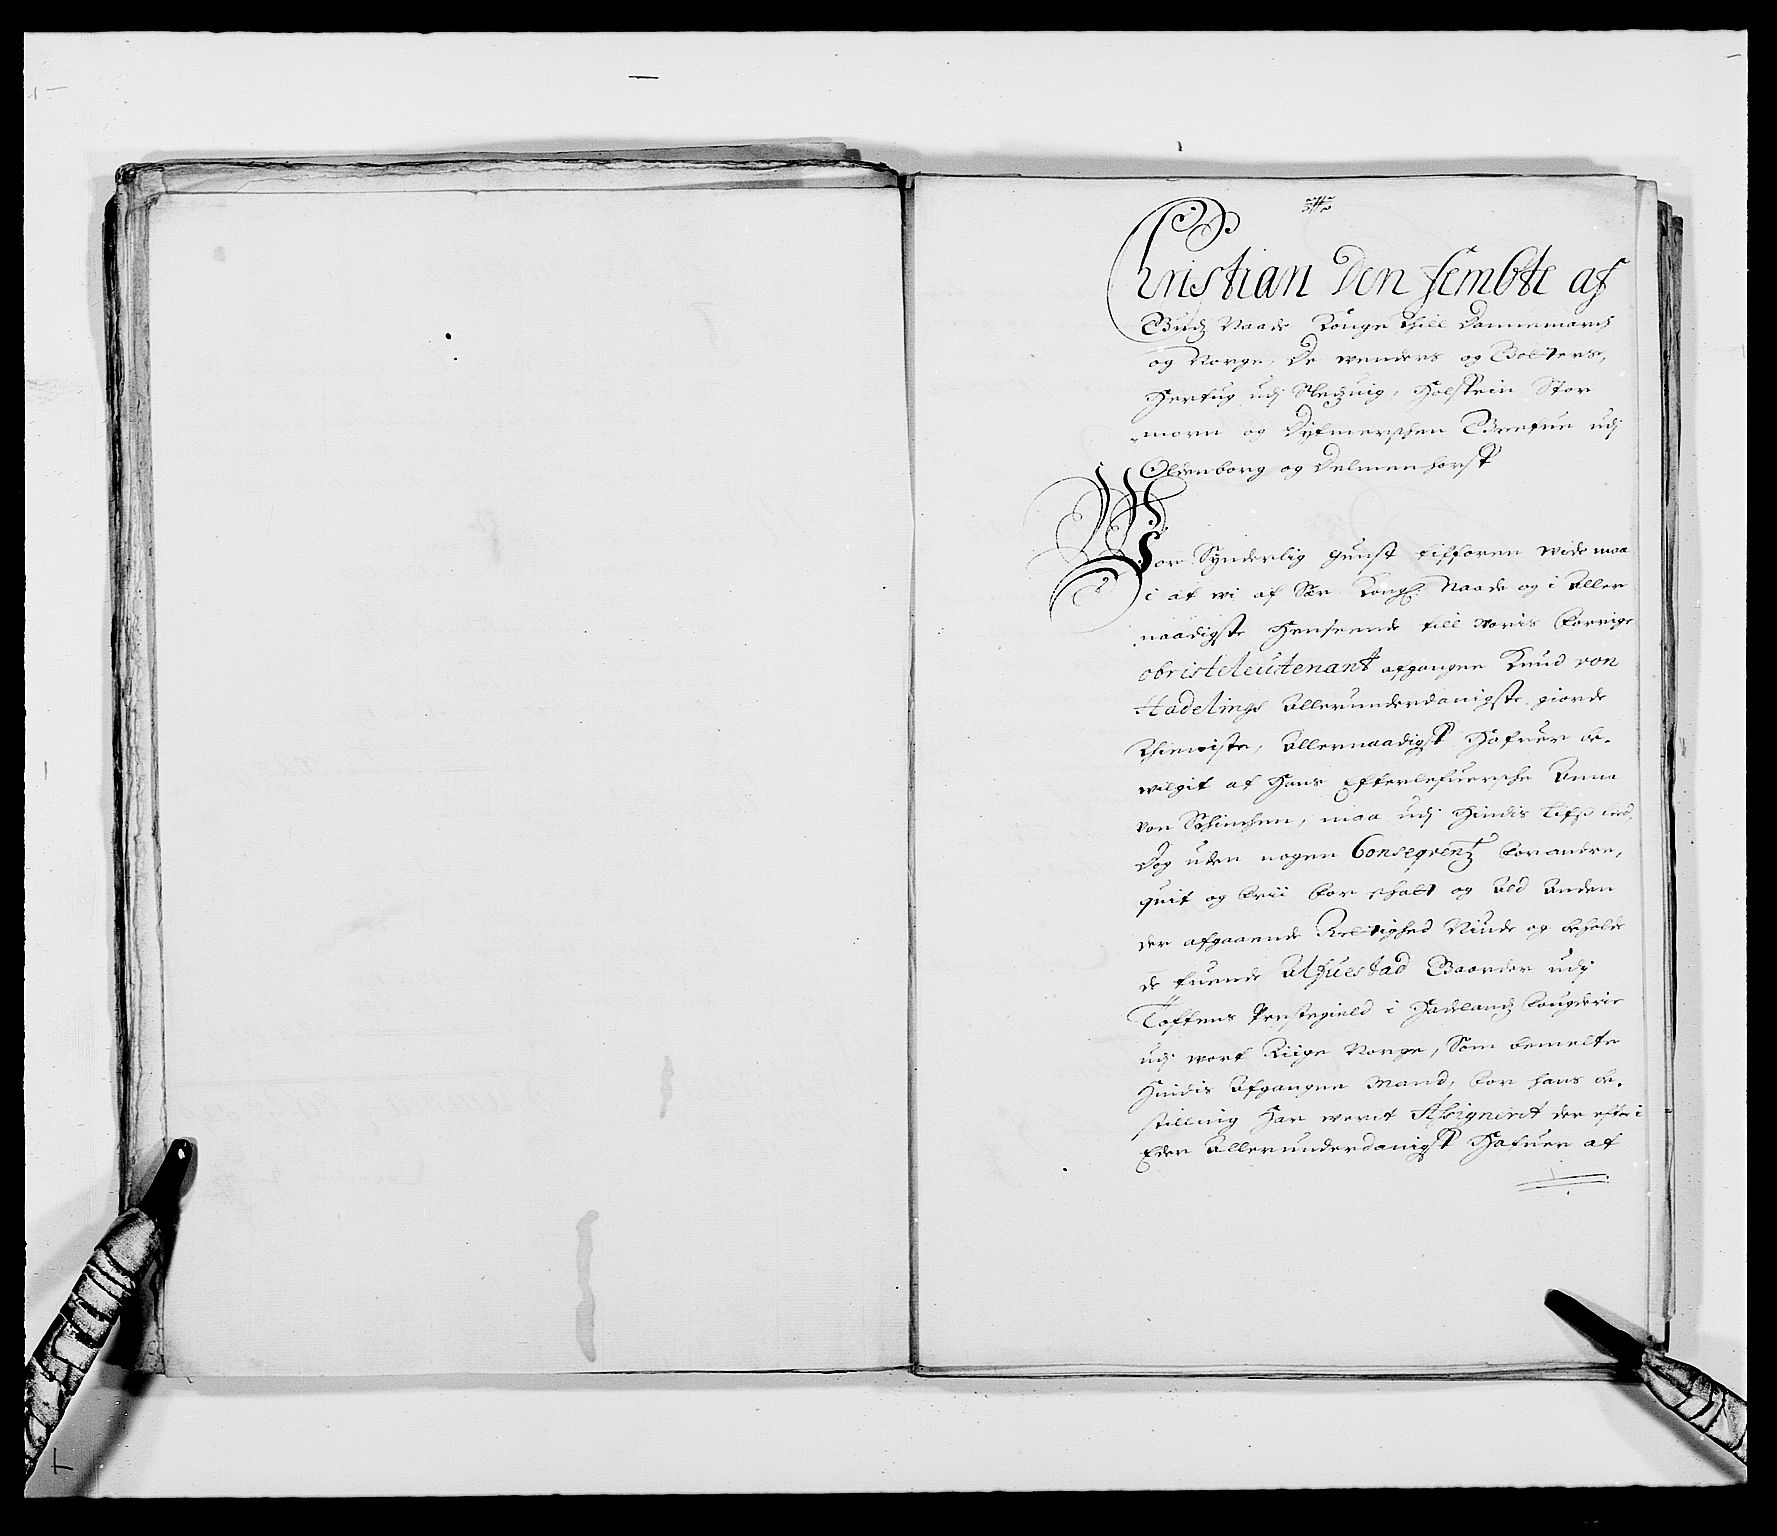 Christian Den fembte af
Gudz Naade Konge thill Dannemarch
og Norge, De wenders og Gotters,
Hertug udj Sletzuig, Holstein Stor
morn og Dytmerschen Grefue udj
Oldenborg og Delmenhorst
Wor Synderlig gunst tilforen wide maa
i at wi af Sær Kongl: Naade og i Aller
naadigste Henseende till woris forrige
obristeleutenant afgangne Knud von
Hadelings Allerunderdanigste giorde
Thieniste, Allernaadigst Hafuer be-
wilgit at Hans Efterlefuersche Anna
von Schinchen, maa udj Hindis Lifs tid,
Dog uden nogen Conseqventz for andre,
quit og frii for schatt og Ald Anden
der afgaaende Rettighed Niude og beholde
de tuende Alfuestad Gaarder udj
Toftens Prestegield i Hadelandz fougderie
udj wort Riige Norge, Som bemelte
Hindis Afgangne Mand, for hans be-
stilling Har werit Assignerit der efter i
Eder Allerunderdanigst Hafuer at